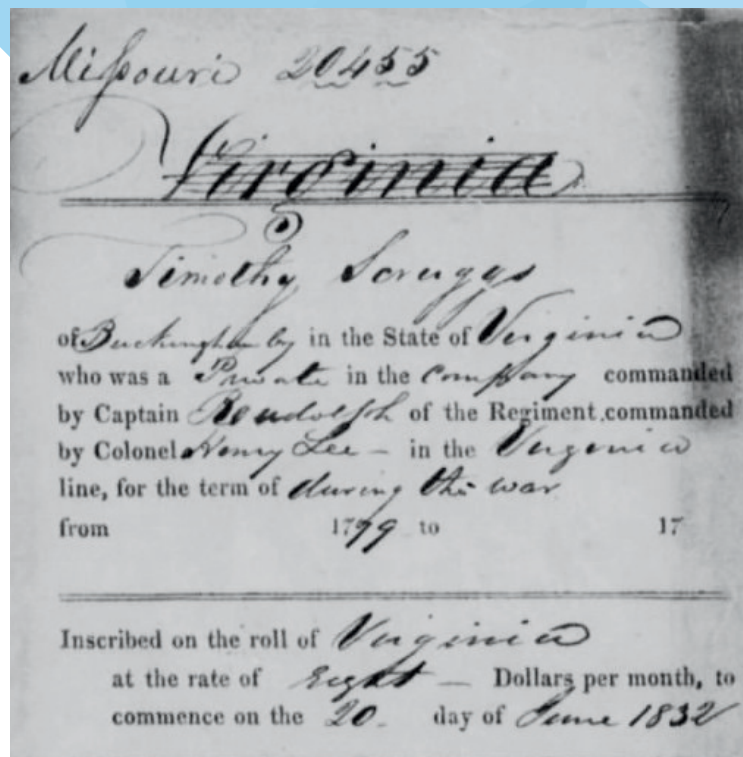 Missouri 20455
Virginia
Timothy Scruggs
of Buckingham Cy in the State of Virginia
who was a Private in the Company commanded
by Captain Rudolph of the Regiment commanded
by Colonel Henry Lee - in the Virginia
line, for the term of during the war
from 1779 to 17
Inscribed on the roll of Virginia
at the rate of Eight - Dollars per month, to
commence on the 20 day of June 1832